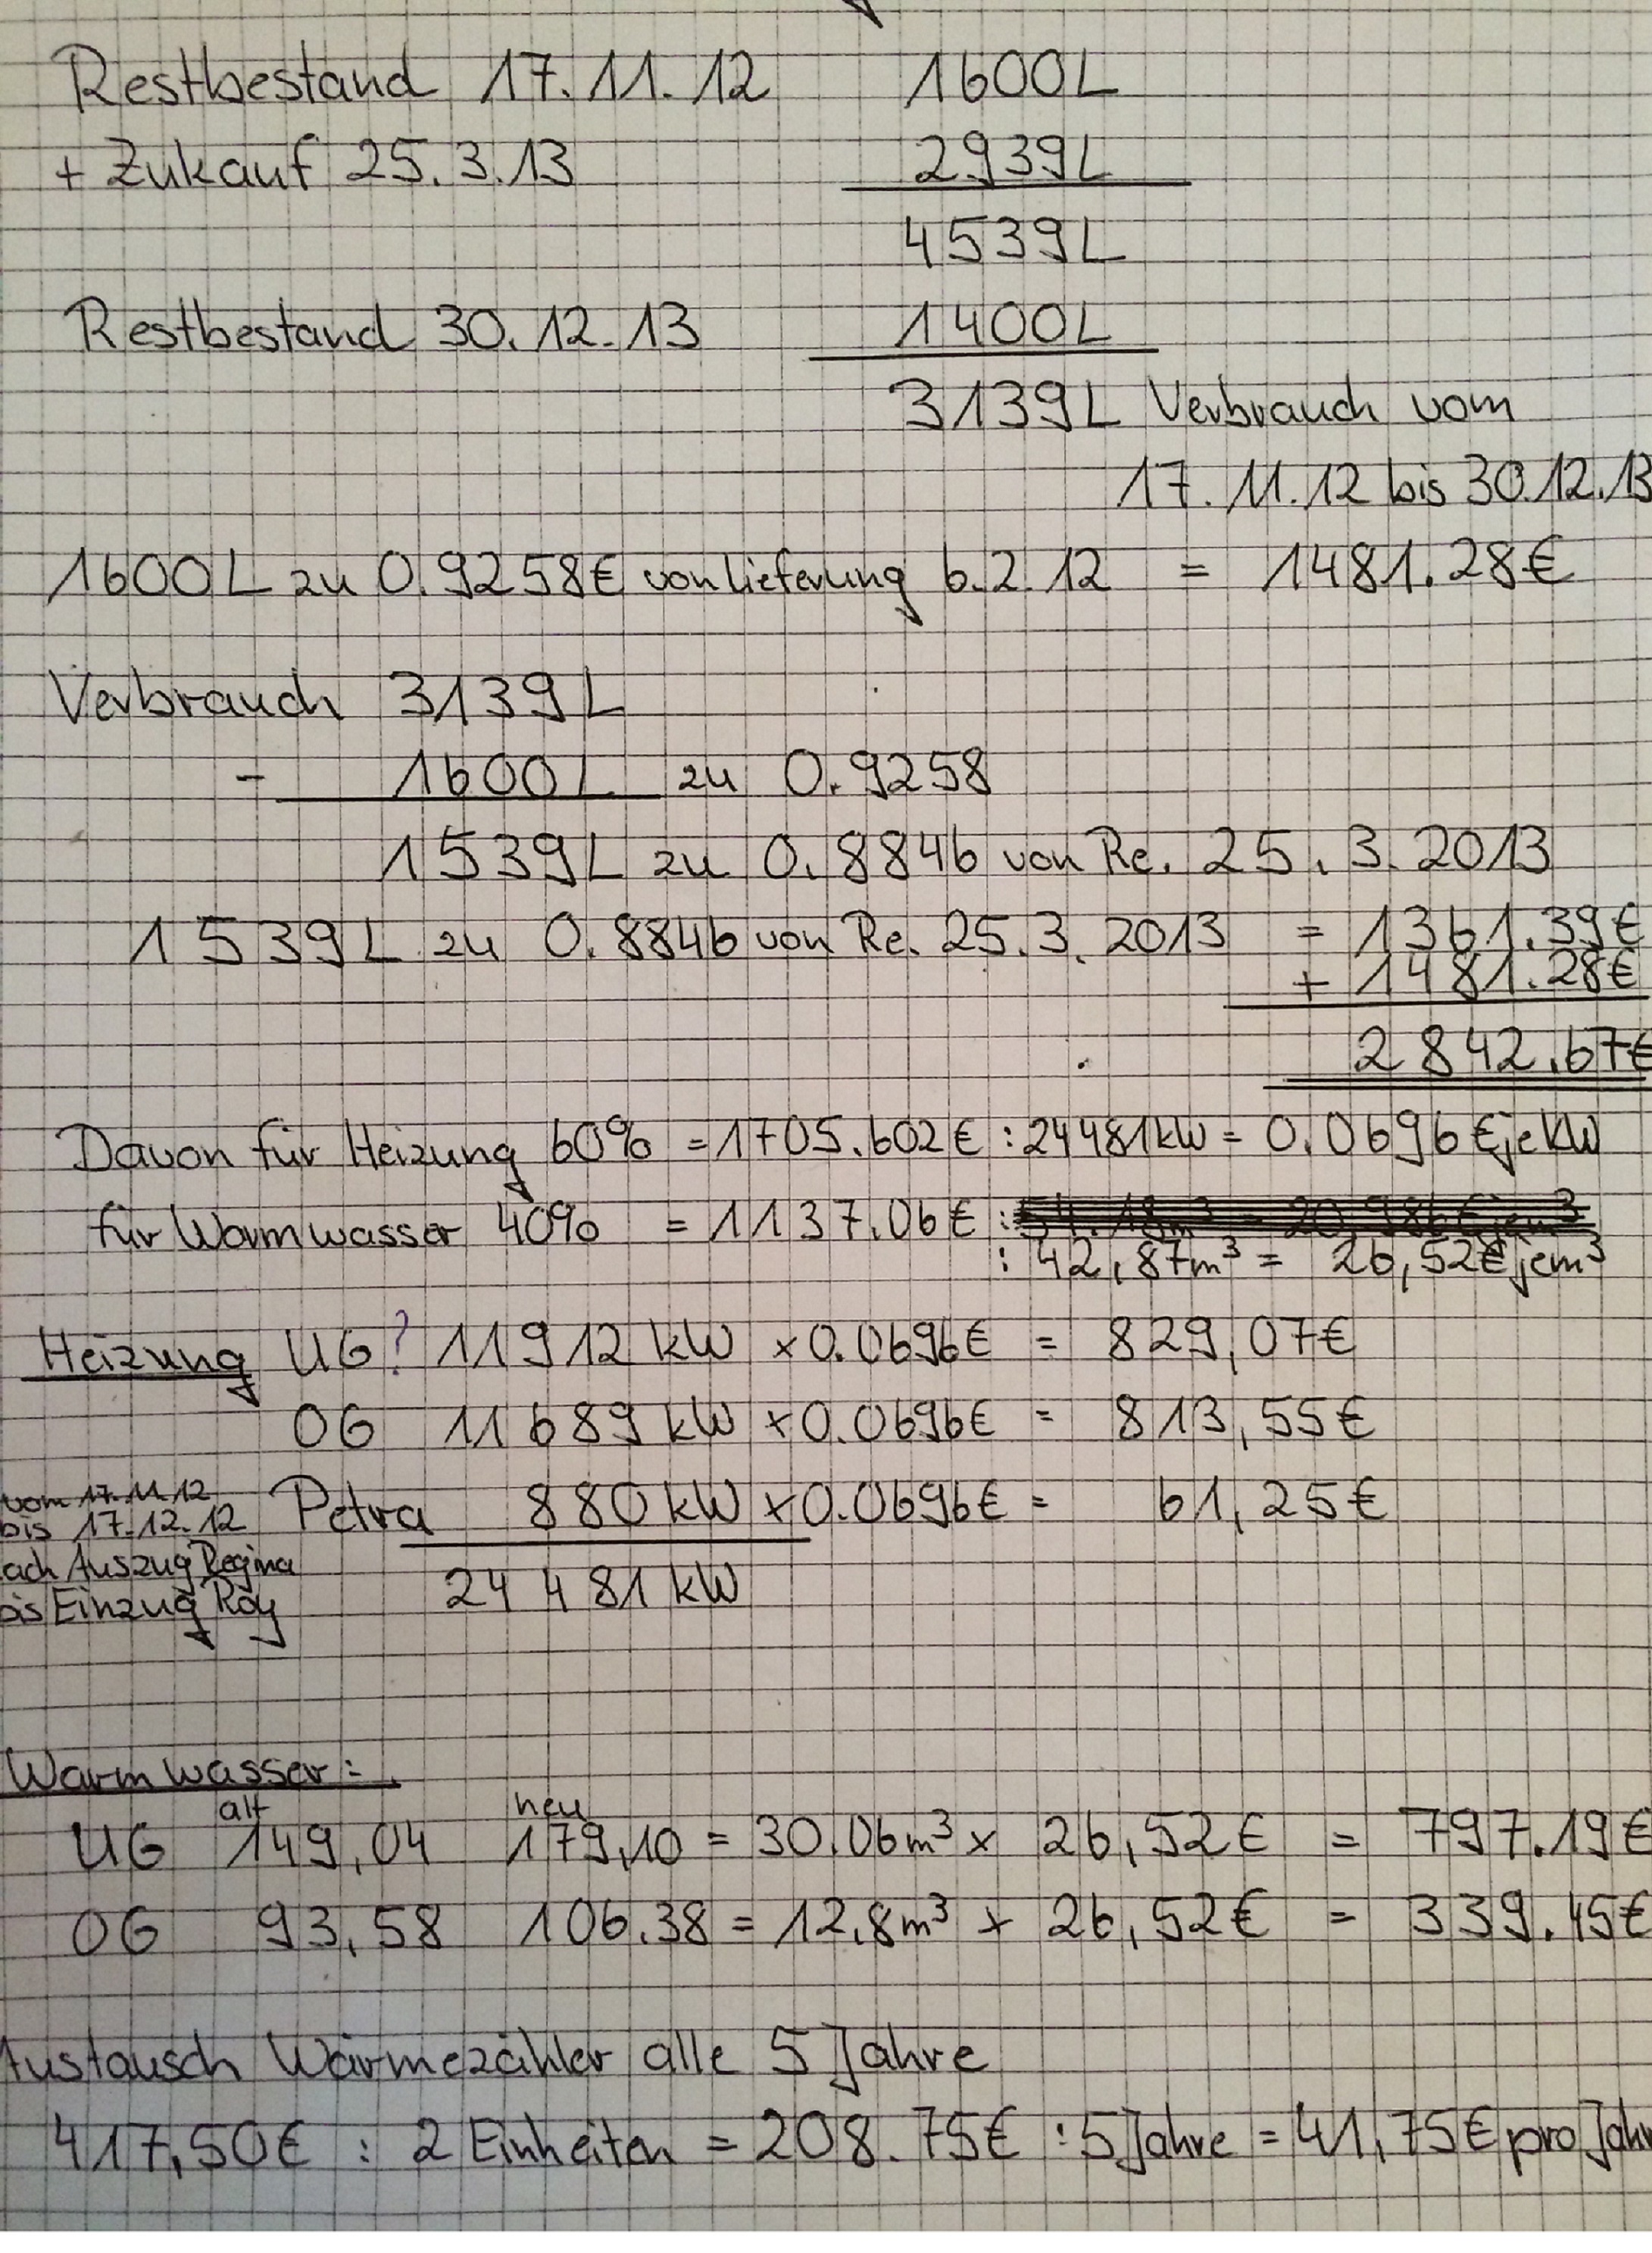 Restbestand 17.11.12 1600L
+ Zukauf 25.3.13 2939L
4539L
Restbestand 30.12.13 1400L
3139L Verbrauch vom
17.11.12 bis 30.12.13
1600L zu 0.9258€ von lieferung 6.2.12 = 1481.28€
Verbrauch 3139L
- 1600L zu 0.9258
1539L zu 0.8846 von Re. 25.3.2013
1539L zu 0.8846 von Re. 25.3.2013 = 1361.39€
+ 1481.28€
2842.67€
Davon für Heizung 60% = 1705.602€ : 24481kW = 0.0696€ je kW
für Warmwasser 40% = 1137.06€ :
: 42,87m³ = 26,52€ je m³
Heizung UG? 11912 kW x 0.0696€ = 829,07€
OG 11689 kW x 0.0696€ = 813,55€
vom 17.11.12
bis 17.12.12 Petra 880 kW x 0.0696€ = 61,25€
ach Auszug Regina
bis Einzug Roy 24481 kW
Warmwasser:
alt neu
UG 149,04 179,10 = 30.06m³ x 26,52€ = 797.19€
OG 93,58 106.38 = 12.8m³ x 26,52€ = 339.45€
Austausch Wärmezähler alle 5 Jahre
417,50€ : 2 Einheiten = 208.75€ : 5 Jahre = 41,75€ pro Jahr